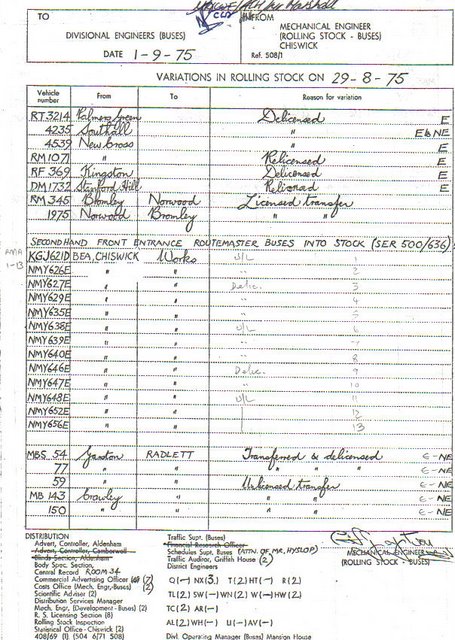 TO
DIVISIONAL ENGINEERS (BUSES)
DATE 1-9-75
MECHANICAL ENGINEER
(ROLLING STOCK - BUSES)
CHISWICK
Ref. 508/1
VARIATIONS IN ROLLING STOCK ON 29-8-75
Vehicle number From To Reason for variation
RT3214 Palmers Green Delicensed E
4235 Southall " E & NE
4539 New Cross E
RM1071 " Relicensed E
RF 369 Kingston Delicensed E
DM1732 Stamford Hill Relicensed E
RM 345 Bromley Norwood Licensed transfer
1975 Norwood Bromley " "
SECONDHAND FRONT ENTRANCE ROUTEMASTER BUSES INTO STOCK (SER 500/636):
RMA 1-13
KGJ621D BEA, CHISWICK Works U/L 1
NMY626E " " " 2
NMY627E " " Delic. 3
NMY629E " " " 4
NMY635E " " " 5
NMY638E " " U/L 6
NMY639E " " " 7
NMY640E " " " 8
NMY646E " " Delic. 9
NMY647E " " " 10
NMY648E " " U/L 11
NMY652E " " 12
NMY656E " " 13
MBS 54 Garston RADLETT Transferred & delicensed E-NE
77 " " " " " E-NE
59 " " Unlicensed transfer E-NE
MB 143 Crawley " " " E-NE
150 " " " " E-NE
DISTRIBUTION
Advert, Controller, Aldenham
Advert, Controller, Camberwell
Body Spec. Section,
Central Record ROOM 34
Commercial Advertising Officer (7)
Costs Office (Mech. Engr.-Buses) (2)
Scientific Adviser (2)
Distribution Services Manager
Mech. Engr, (Development-Buses) (2)
R. S. Licensing Section (8)
Rolling Stock Inspection
Statistical Office-Chiswick (2)
408/69 (1) (504 6/71 508)
Traffic Supt. (Buses)
Financial Research Officer
Schedules Supt, Buses (ATTN. OF MR. HYSLOP)
Traffic Auditor, Griffith House (2)
District Engineers
Q(-) NX(3) T(2) HT(-) R(2)
TL(2) SW(-) WN(2) W(-) HW(2)
TC(2) AR(-)
AL(2) WH(-) U(-) AV(-)
Divl. Operating Manager (Buses) Mansion House
MECHANICAL ENGINEER
(ROLLING STOCK - BUSES)